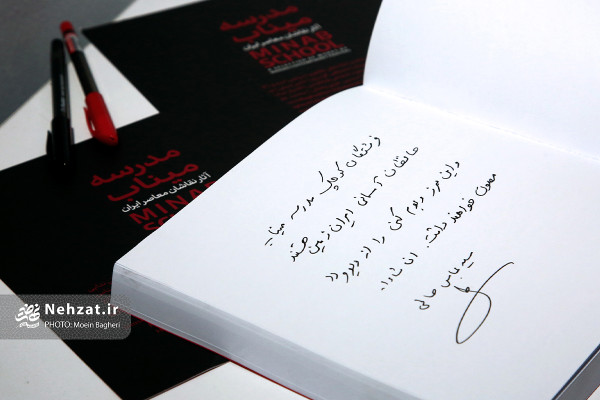 مدرسه
میناب
آثار نقاشان معاصر ایران
MINAB
SCHOOL
مدرسه
میناب
آثار نقاشان معاصر ایران
MINAB
فرشتگان کوچک مدرسه میناب
حافظان آسمان ایران زمین هستند
و این مرز و بوم کهن را از دیو و دد
مصون خواهند داشت. ان شاءالله
سید عباس
Nehzat.ir
PHOTO: Moein Bagheri